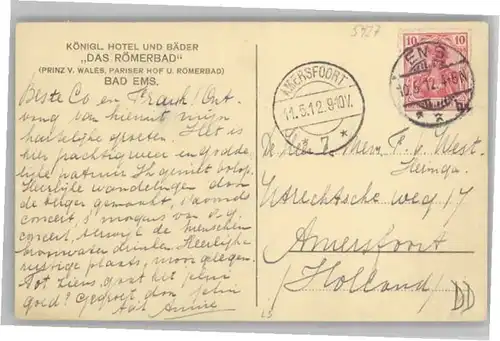 5427
KÖNIGL. HOTEL UND BÄDER
„DAS RÖMERBAD“
(PRINZ V. WALES, PARISER HOF U. RÖMERBAD)
BAD EMS.
Beste Co en Frank! Ont-
vang van hieruit mijn
hartelijke groeten. Het is
hier prachtig weer en
natuur. Ik geniet volop.
Heerlijke wandelingen door
de bergen gemaakt, 's avonds
concert, 's morgens van
concert, terwijl de menschen
bronwater drinken. Heerlijke
rustige plaats, mooi gelegen.
Tot ziens, gaat het
goed? Gegroet door
AMERSFOORT
11.5.12.9-10V.
* 7 *
10 10
EMS
10.5.12.
* z
De Heer F. v. West-
Utrechtsche weg 17
Amersfoort
(Holland)
LS